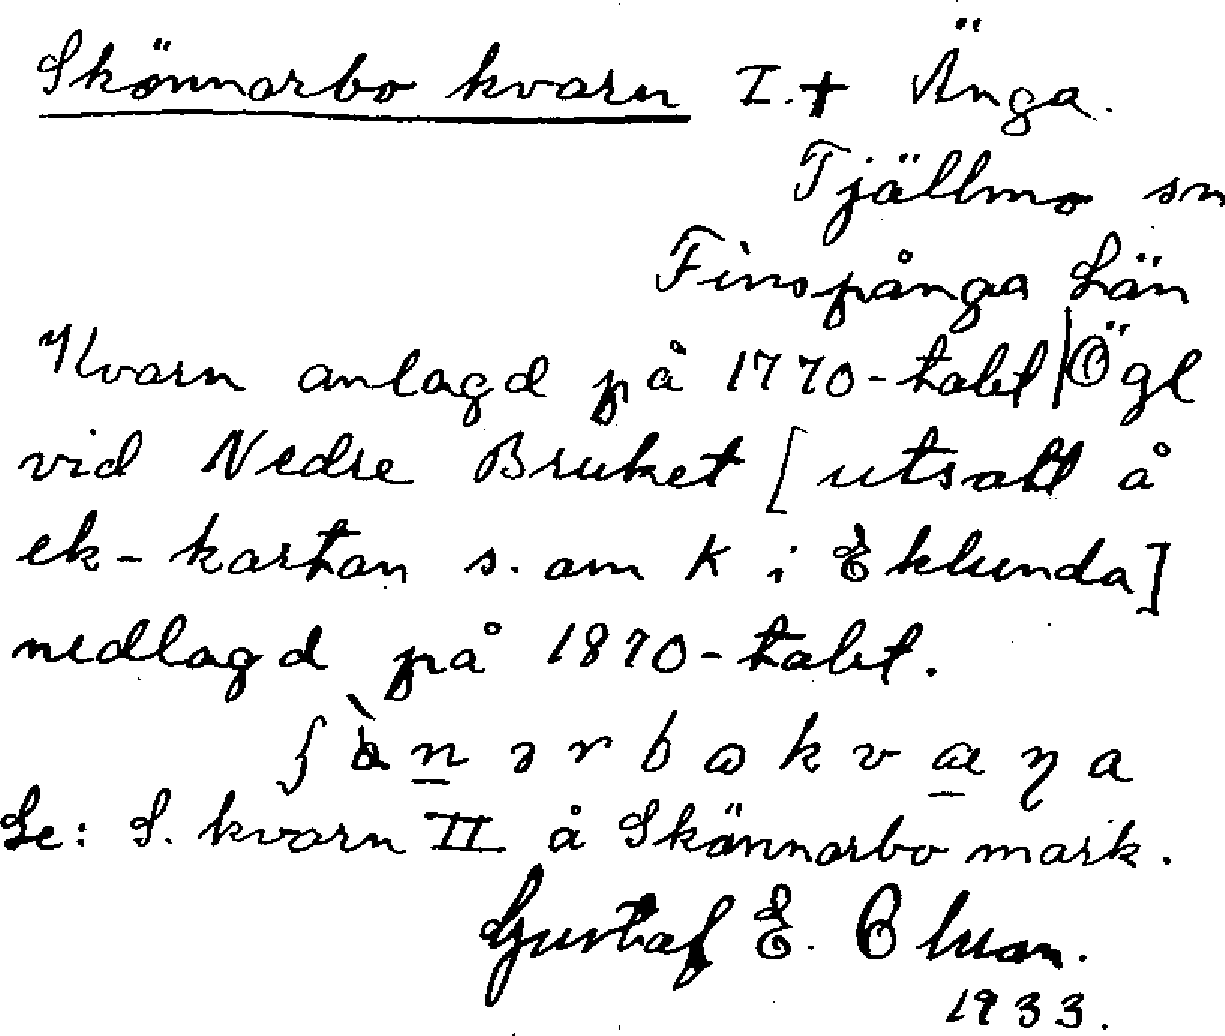 Skönnarbo kvarn I.+ Änga.
Tjällmo sn
Finspånga Län
Kvarn anlagd på 1770-talet | Ögl
vid Nedre Bruket [utsatt å
ek-kartan s. am K i Eklunda]
nedlagd på 1870-talet.
ʃ ə r b k v a
Se: S. kvarn II å Skännarbo mark.
Gustaf E. Olsson.
1933.